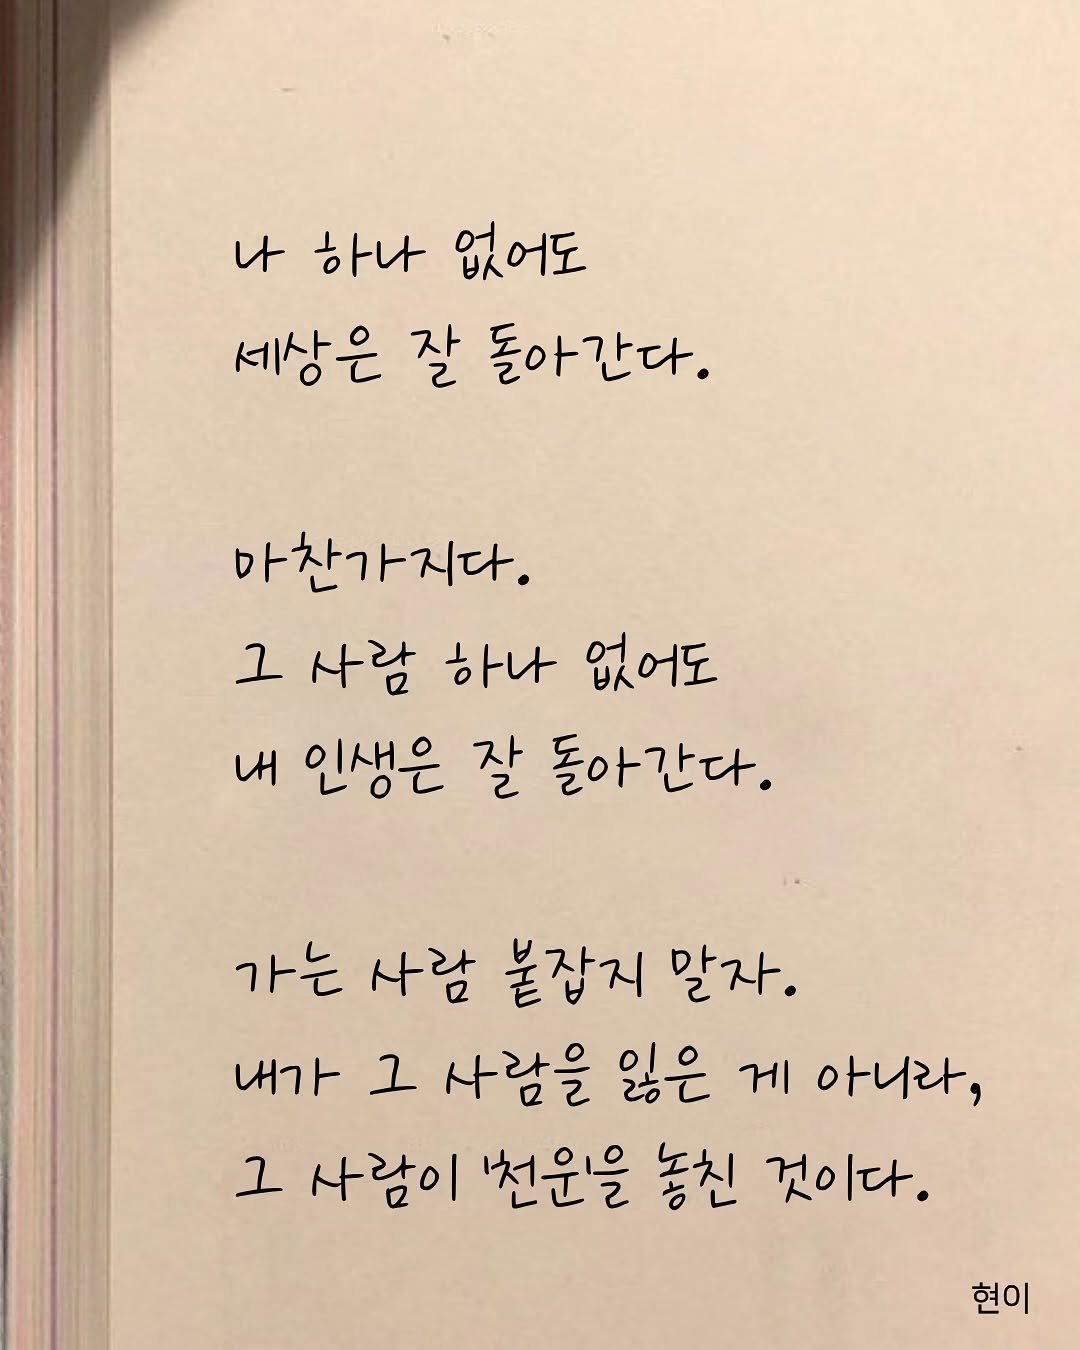 나 하나 없어도
세상은 잘 돌아간다.
마찬가지다.
그 사람 하나 없어도
내 인생은 잘 돌아간다.
가는 사람 붙잡지 말자.
내가 그 사람을 잃은 게 아니라,
그 사람이 '천운'을 놓친 것이다.
현이